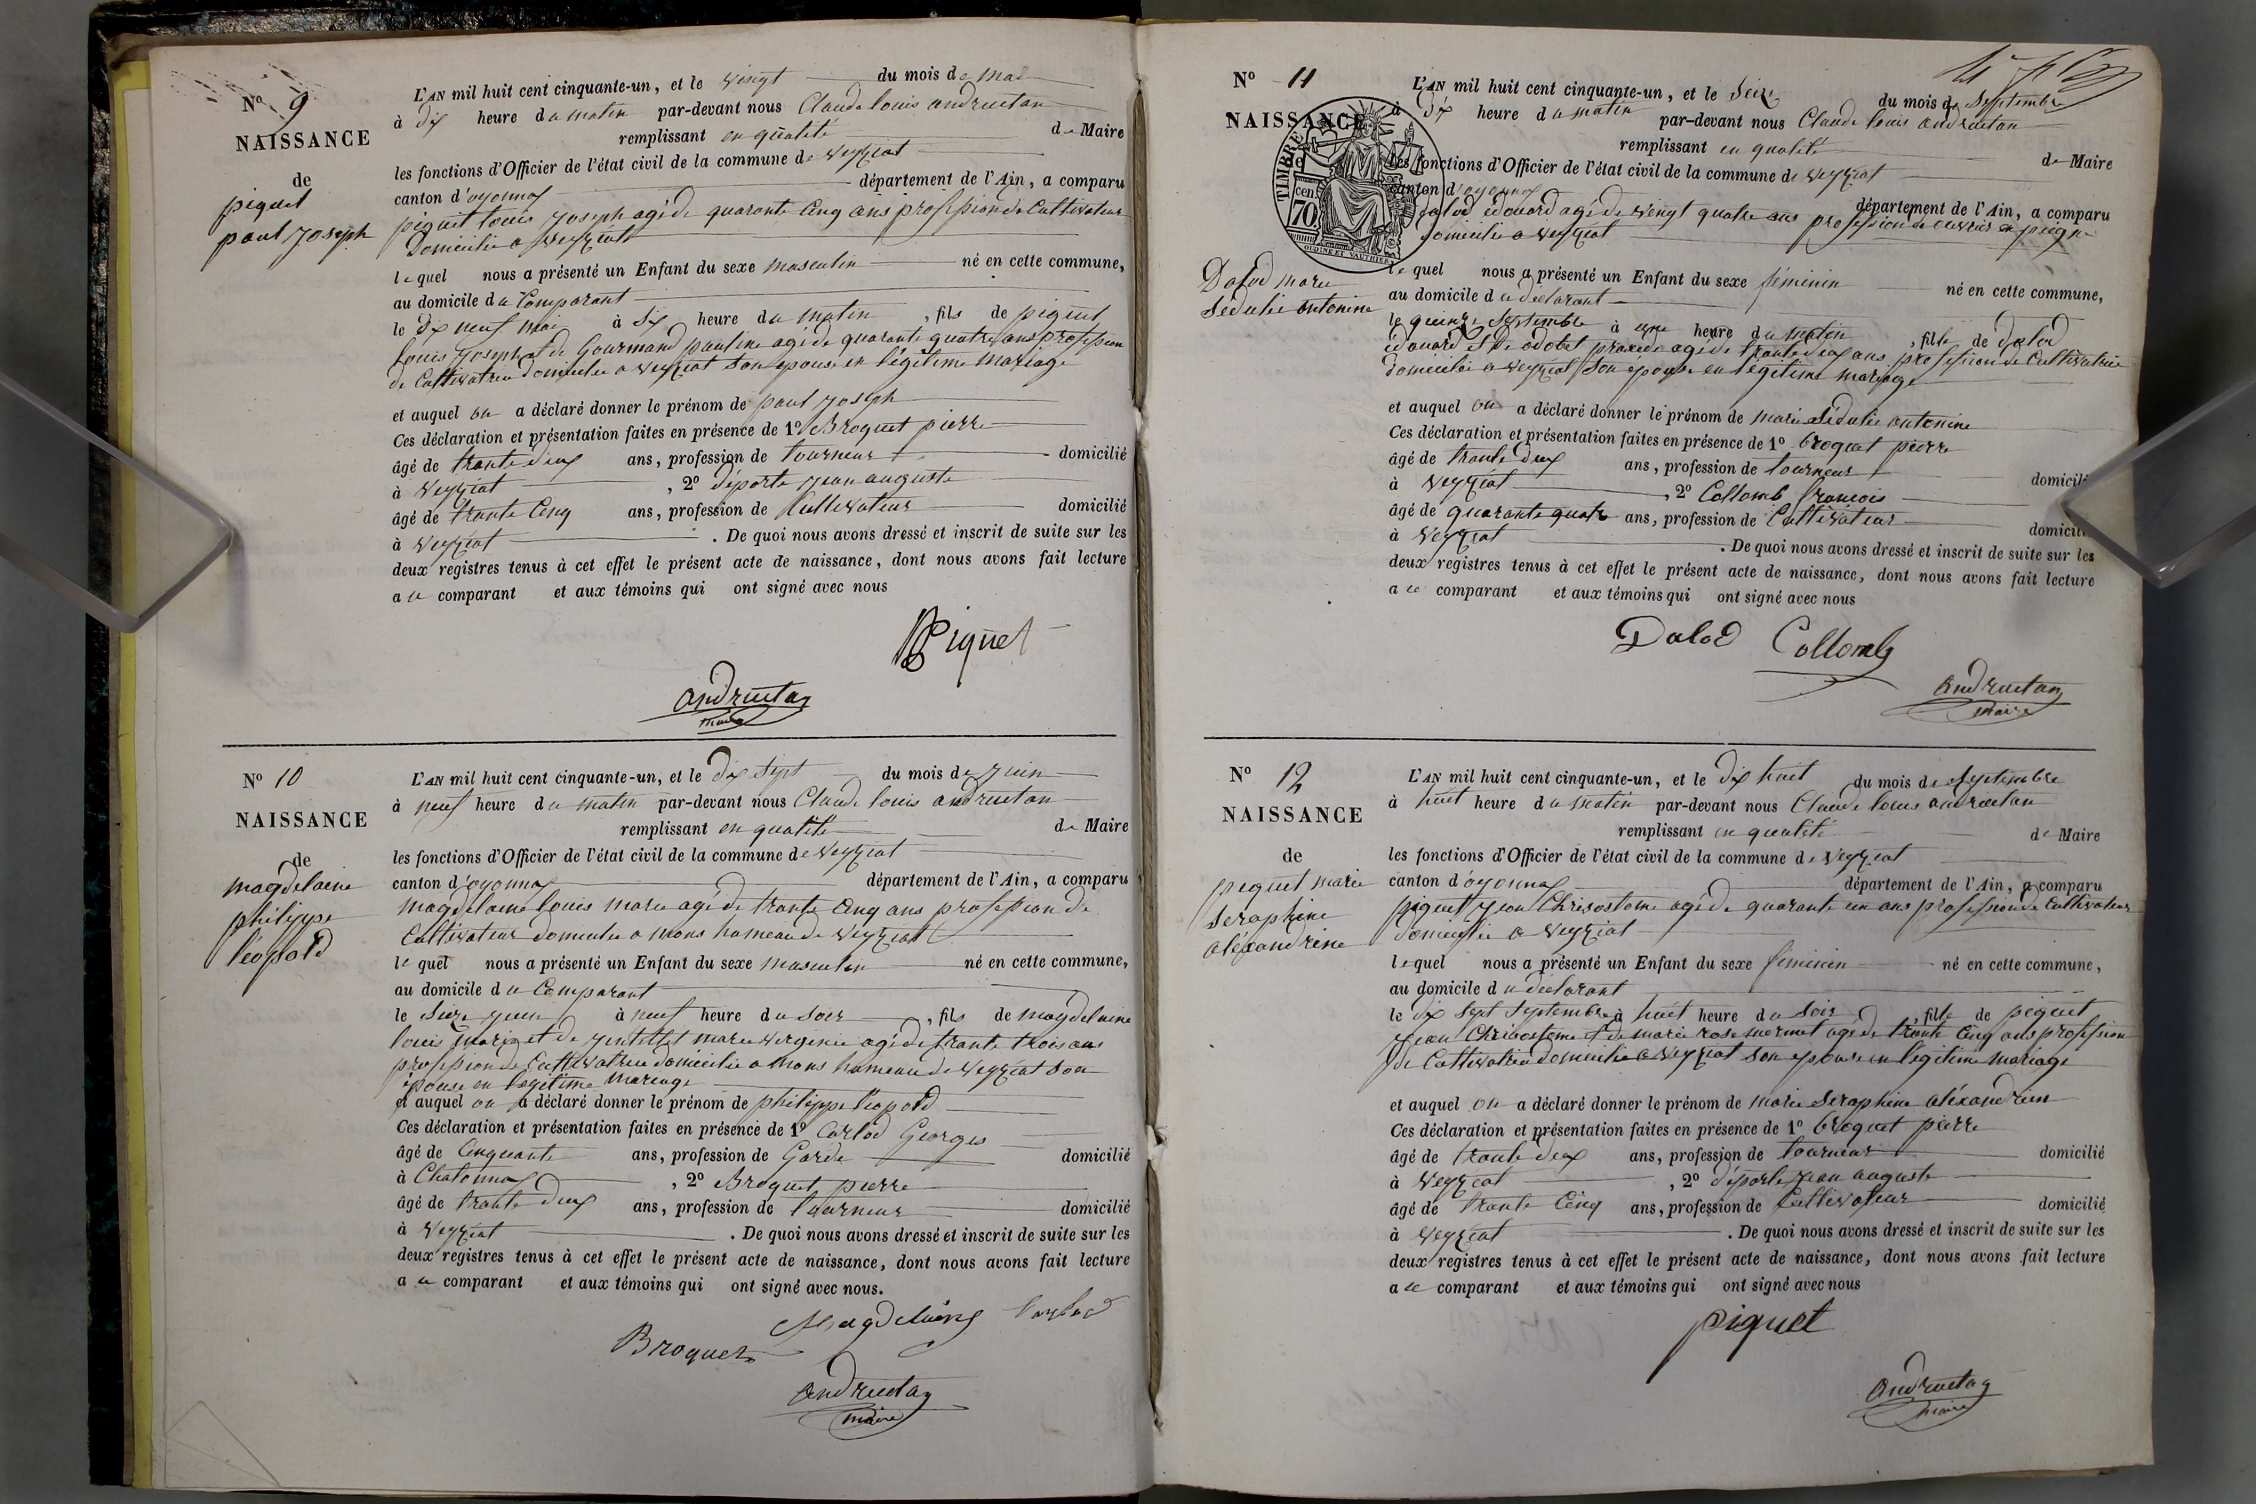 N° 9
NAISSANCE
de
piquet
paul joseph
L'AN mil huit cent cinquante-un, et le vingt du mois de mai
à dix heure du matin par-devant nous Claude louis andruetan
remplissant en qualité de Maire
les fonctions d'Officier de l'état civil de la commune de veyziat
canton d'oyonnax département de l'Ain, a comparu
piquet louis joseph agé de quarante cinq ans profession de Cultivateur
domicilié a veyziat
lequel nous a présenté un Enfant du sexe masculin né en cette commune,
au domicile du Comparant
le dix neuf mai à six heure du matin, fils de piquet
louis joseph et de Gourmand pauline agé de quarante quatre ans profession
de Cultivatrice domiciliée a veyziat son epouse en légitime mariage
et auquel on a déclaré donner le prénom de paul joseph
Ces déclaration et présentation faites en présence de 1° Broquet pierre
âgé de trante deux ans, profession de tourneur domicilié
à veyziat, 2° déporte jean auguste
âgé de trante Cinq ans, profession de Cultivateur domicilié
à veyziat. De quoi nous avons dressé et inscrit de suite sur les
deux registres tenus à cet effet le présent acte de naissance, dont nous avons fait lecture
a ce comparant et aux témoins qui ont signé avec nous
Piquet
andruetan
maire
N° 10
NAISSANCE
de
magdelaine
philippe
léopold
L'AN mil huit cent cinquante-un, et le dix sept du mois de juin
à neuf heure du matin par-devant nous Claude louis andruetan
remplissant en qualité de Maire
les fonctions d'Officier de l'état civil de la commune de veyziat
canton d'oyonnax département de l'Ain, a comparu
magdelaine louis marie agé de trante Cinq ans profession de
Cultivateur domicilié a mons hameau de veyziat
lequel nous a présenté un Enfant du sexe masculin né en cette commune,
au domicile du Comparant
le seize juin à neuf heure du soir, fils de magdelaine
louis marie et de jentillet marie virginie agé de trante trois ans
profession de Cultivatrice domiciliée a mons hameau de veyziat son
epouse en légitime mariage
et auquel on a déclaré donner le prénom de philippe léopold
Ces déclaration et présentation faites en présence de 1° Carlod Georges
âgé de Cinquante ans, profession de Garde domicilié
à Chatonnax, 2° Broquet pierre
âgé de trante deux ans, profession de tourneur domicilié
à veyziat. De quoi nous avons dressé et inscrit de suite sur les
deux registres tenus à cet effet le présent acte de naissance, dont nous avons fait lecture
a ce comparant et aux témoins qui ont signé avec nous.
Magdelaine Carlod
Broquet
andruetan
maire
N° 11
NAISSANCE
TIMBRE
cen
70
OUDINÉ ET VAUTHIER
Dalod marie
sédulie antonine
L'AN mil huit cent cinquante-un, et le seize du mois de septembre
à dix heure du matin par-devant nous Claude louis andruetan
remplissant en qualité de Maire
les fonctions d'Officier de l'état civil de la commune de veyziat
canton d'oyonnax département de l'Ain, a comparu
dalod edouard agé de vingt quatre ans profession de ouvrier en peigne
domicilié a veyziat
lequel nous a présenté un Enfant du sexe féminin né en cette commune,
au domicile du déclarant
le quinze septembre à une heure du matin, fille de dalod
edouard et de odobet praxede agé de trante deux ans profession de Cultivatrice
domiciliée a veyziat son epouse en légitime mariage
et auquel on a déclaré donner le prénom de marie Sédulie antonine
Ces déclaration et présentation faites en présence de 1° broquet pierre
âgé de trante deux ans, profession de tourneur
à veyziat, 2° Collomb francois domicilié
âgé de quarante quatre ans, profession de Cultivateur
à veyziat domicilié. De quoi nous avons dressé et inscrit de suite sur les
deux registres tenus à cet effet le présent acte de naissance, dont nous avons fait lecture
a ce comparant et aux témoins qui ont signé avec nous
Dalod Collomb
andruetan
maire
N° 12
NAISSANCE
de
piquet marie
seraphine
aléxandrine
L'AN mil huit cent cinquante-un, et le dix huit du mois de septembre
à huit heure du matin par-devant nous Claude louis andruetan
remplissant en qualité de Maire
les fonctions d'Officier de l'état civil de la commune de veyziat
canton d'oyonnax département de l'Ain, a comparu
piquet jean Chrisostome agé de quarante un ans profession de Cultivateur
domicilié a veyziat
lequel nous a présenté un Enfant du sexe féminin né en cette commune,
au domicile du déclarant
le dix sept septembre à huit heure du soir, fille de piquet
jean Chrisostome et de marie rose mermet agé de trante Cinq ans profession
de Cultivatrice domiciliée a veyziat son epouse en légitime mariage
et auquel on a déclaré donner le prénom de marie Seraphine aléxandrine
Ces déclaration et présentation faites en présence de 1° broquet pierre
âgé de trante deux ans, profession de tourneur domicilié
à veyziat, 2° déporte jean auguste
âgé de trante Cinq ans, profession de Cultivateur domicilié
à veyziat. De quoi nous avons dressé et inscrit de suite sur les
deux registres tenus à cet effet le présent acte de naissance, dont nous avons fait lecture
a ce comparant et aux témoins qui ont signé avec nous
piquet
andruetan
maire